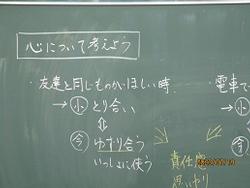 心について考えよう
・友達と同じものがほしい時
→小 とり合い
⇕
今 ゆずり合い
いっしょに使う
電車で
→小
今
責任感
思いやり